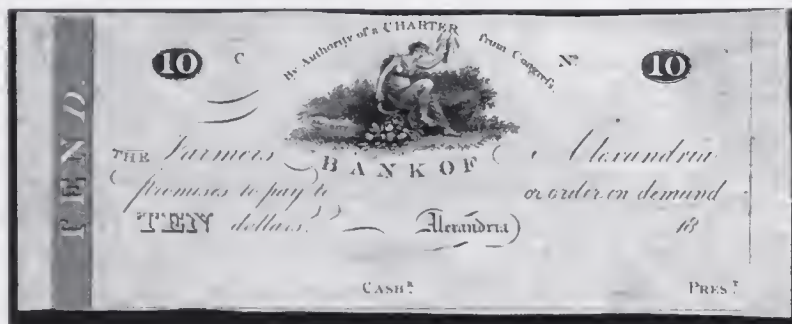 TEN D.
By Authority of a CHARTER from Congress
10 C Nº 10
THE Farmers BANK OF Alexandria
promises to pay to or order on demand
TEN dollars. Alexandria 18
CASHR PREST